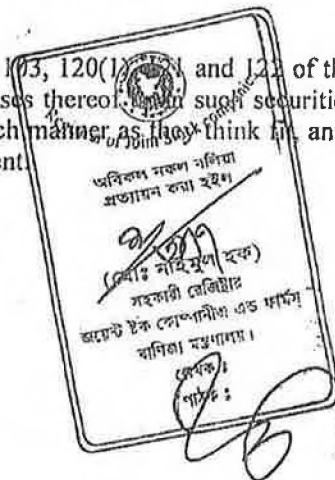 103, 120(1) and 122 of th
ses thereof upon such securitie
ch manner as they think fit, an
ent.
Registrar of Joint Stock Companies
অবিকল নকল বলিয়া
প্রত্যায়ন করা হইল
(মোঃ নাইমুল হক)
সহকারী রেজিষ্ট্রার
জয়েন্ট ষ্টক কোম্পানীজ এন্ড ফার্মস
বাণিজ্য মন্ত্রণালয়।
লেখক :
পাঠক :